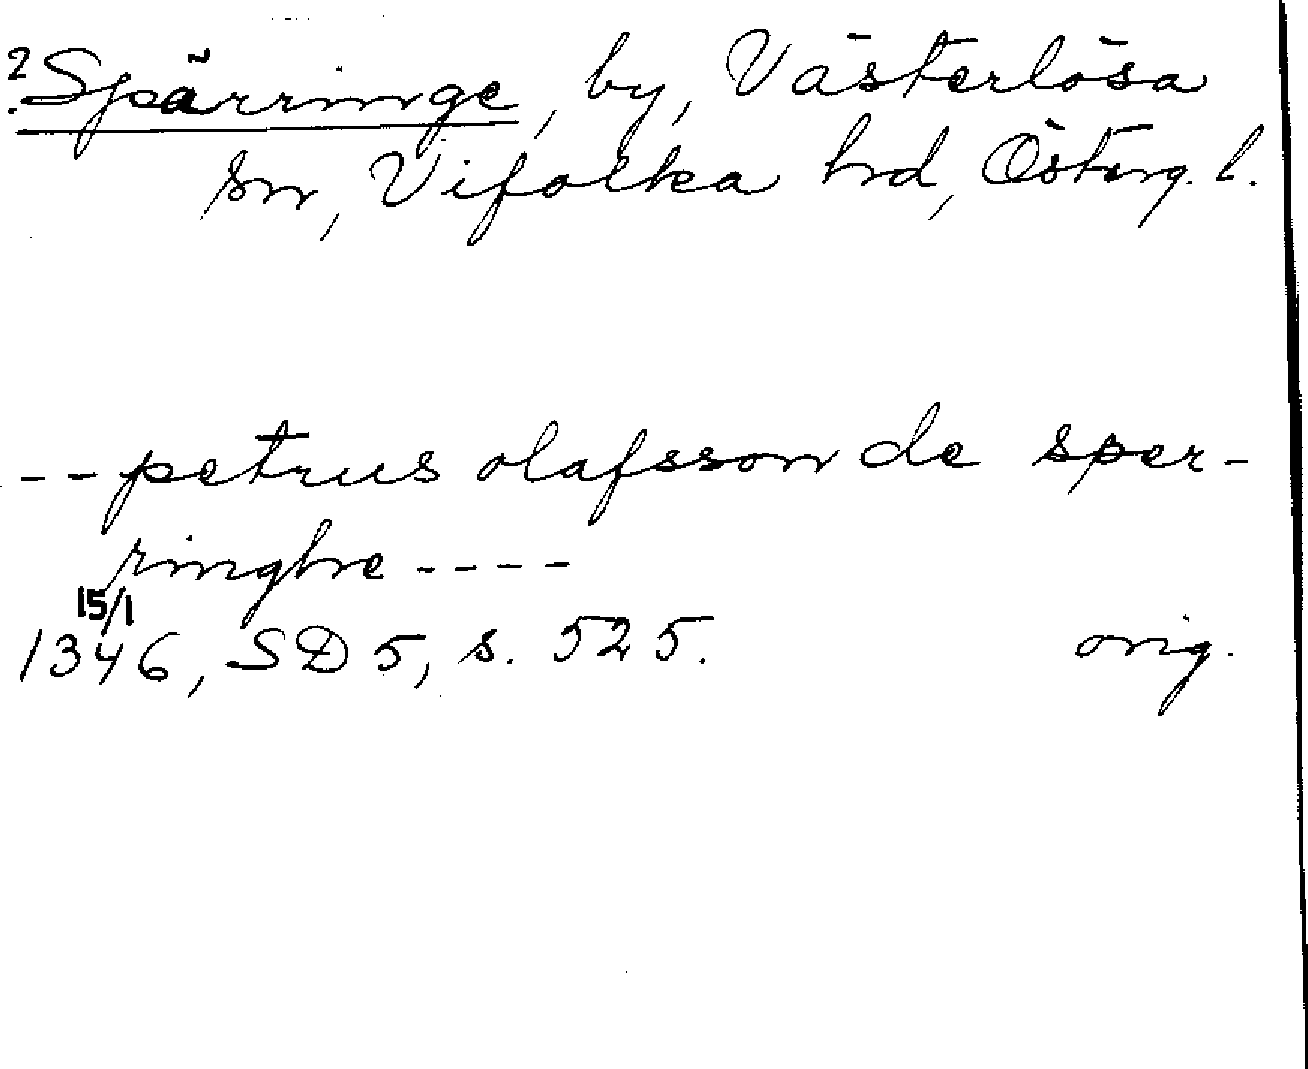 ? Spärringe, by, Västerlösa
sn, Vifolka hrd, Österg. l.
-- petrus olafsson de sper-
ringhe ----
15/1
1346, SD 5, s. 525. orig.